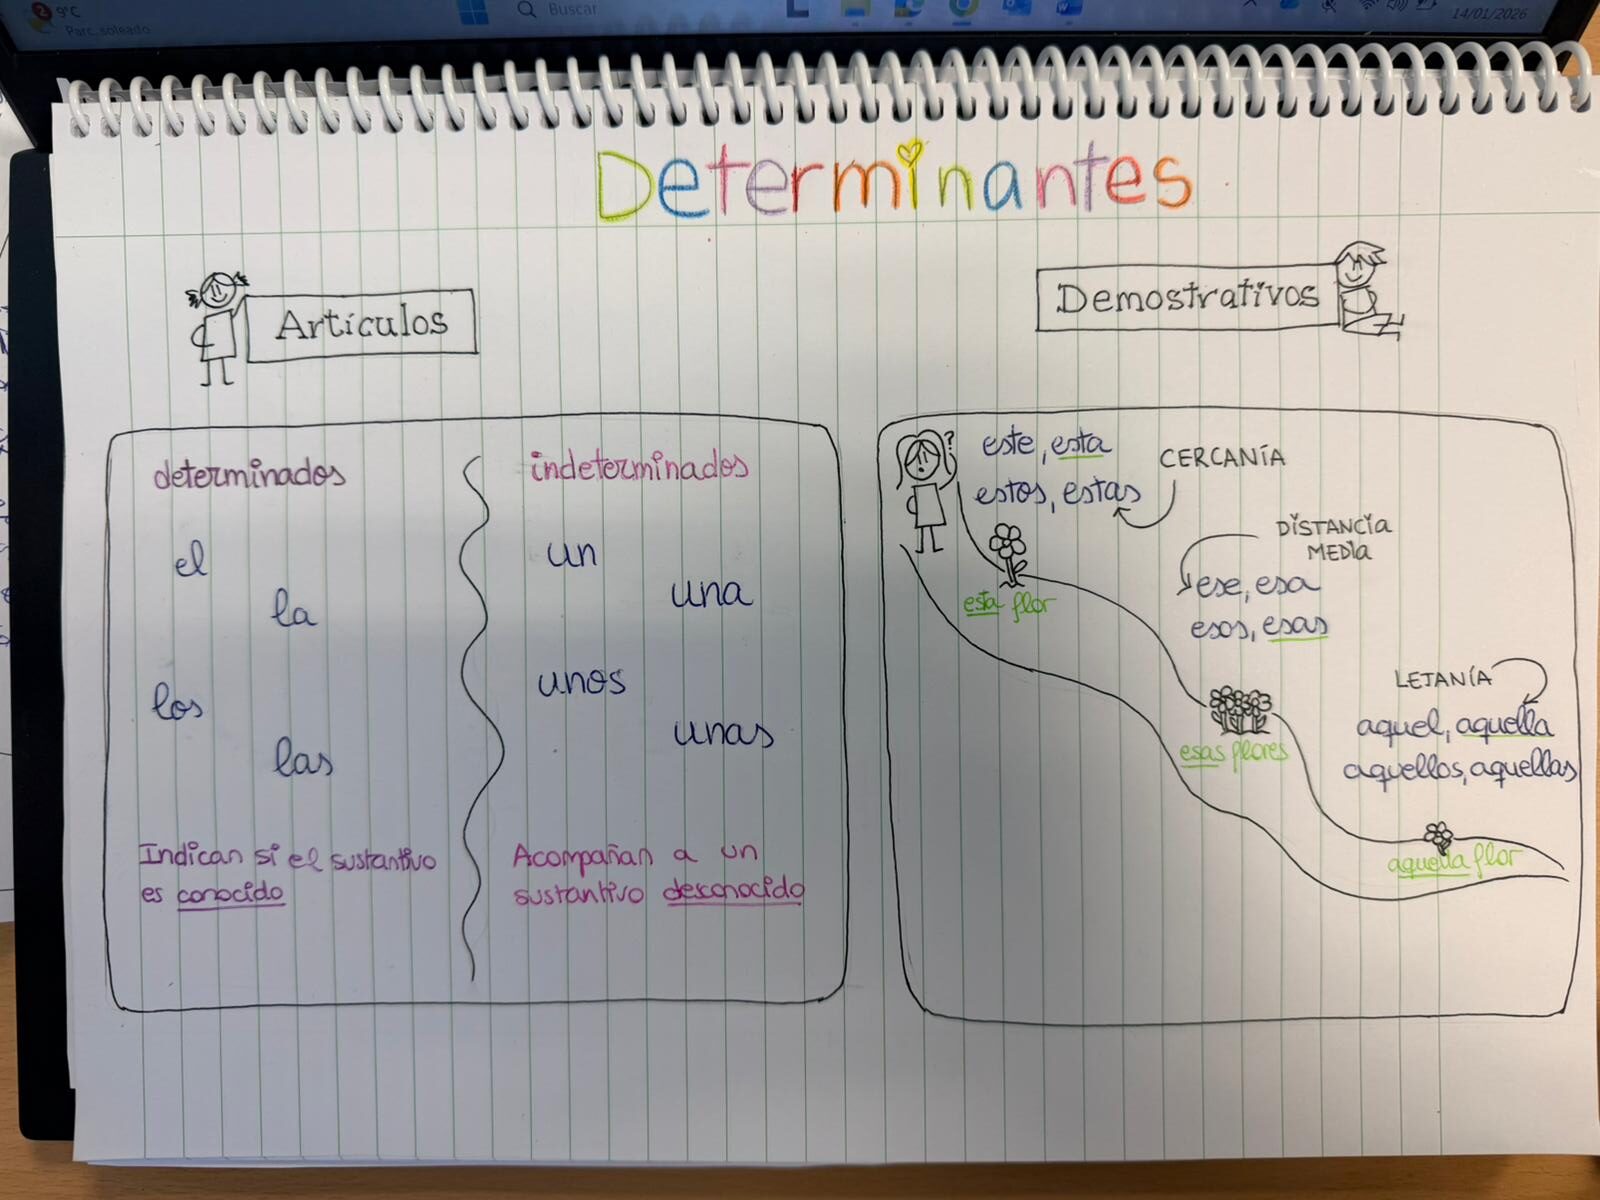 9°C
Parc. soleado
Buscar
14/01/2026
Determinantes
Artículos
determinados
el
la
los
las
Indican si el sustantivo
es conocido
indeterminados
un
una
unos
unas
Acompañan a un
sustantivo desconocido
Demostrativos
?
este, esta
estos, estas
CERCANÍA
esta flor
DISTANCIA
MEDIA
ese, esa
esos, esas
esas flores
LEJANÍA
aquel, aquella
aquellos, aquellas
aquella flor